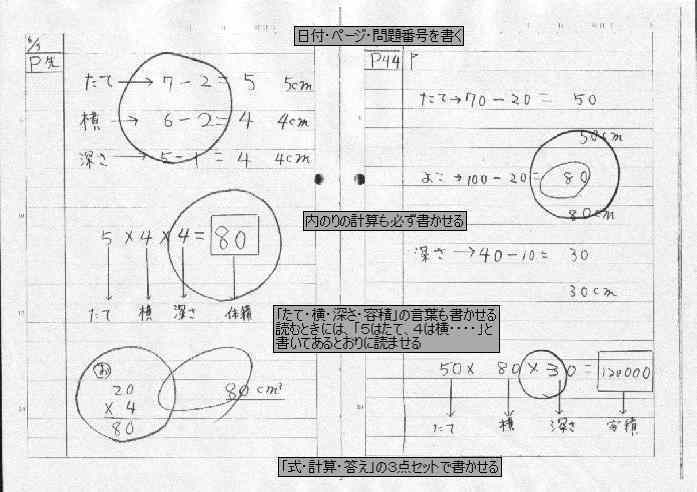 日付・ページ・問題番号を書く
6/3
P先
たて → 7 - 2 = 5 5cm
横 → 6 - 2 = 4 4cm
深さ → 5 - 1 = 4 4cm
5 × 4 × 4 = 80
たて 横 深さ 体積
お
20
× 4
80
80cm³
P44 P
たて → 70 - 20 = 50
50cm
よこ → 100 - 20 = 80
80cm
内のりの計算も必ず書かせる
深さ → 40 - 10 = 30
30cm
「たて・横・深さ・容積」の言葉も書かせる
読むときには、「5はたて、4は横・・・・」と
書いてあるとおりに読ませる
50 × 80 × 30 = 120000
たて 横 深さ 容積
「式・計算・答え」の3点セットで書かせる